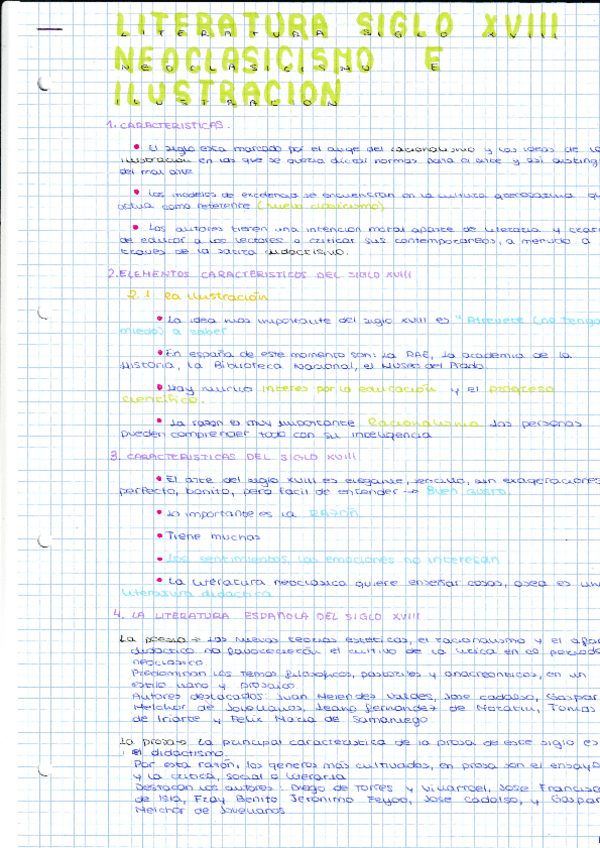 LITERATURA SIGLO XVIII
NEOCLASICISMO E
ILUSTRACION
1. CARACTERISTICAS.
• El siglo esta marcado por el auge del racionalismo y las ideas de la
ilustracion en las que se queria dictar normas para el arte y asi
del mal arte
• Los modelos de excelencia se encuentran en la cultura grecolatina
actua como referente (nuevo clasicismo)
• Los autores tienen una intencion moral aparte de literaria y
de educar a los lectores o criticar sus contemporaneos, a menudo a
traves de la satira didactismo.
2. ELEMENTOS CARACTERISTICOS DEL SIGLO XVIII
2.1 La ilustración
• La idea mas importante del siglo XVIII es "Atrevete (no tengas
miedo) a saber
• En españa de este momento son: la RAE, la academia de la
Historia, la Biblioteca Nacional, el Museo del Prado.
• Hay mucho interes por la educación y el progreso
cientifico.
• La razon es muy importante Racionalismo las personas
pueden comprender todo con su inteligencia
3. CARACTERISTICAS DEL SIGLO XVIII
• El arte del siglo XVIII es elegante, sencillo, sin exageraciones
perfecto, bonito, pero facil de entender → Buen gusto.
• Lo importante es la RAZON
• Tiene muchas
• Los sentimientos, las emociones no interesan
• La literatura neoclasica quiere enseñar cosas, osea es una
literatura didactica
4. LA LITERATURA ESPAÑOLA DEL SIGLO XVIII
La poesia → Las nuevas teorias esteticas, el racionalismo y el afan
didactico no favorecieron el cultivo de la lirica en el periodo
neoclasico
Predominan los temas filosoficos, pastoriles y anacreonticos, en un
estilo llano y prosaico
Autores destacados: Juan Melendez Valdes, Jose cadalso, Gaspar
Melchor de Jovellanos, Leandro fernandez de Moratin, Tomas
de Iriarte y Felix Maria de Samaniego
La prosa → La principal caracteristica de la prosa de este siglo es
el didactismo.
Por esta razón, los generos más cultivados, en prosa son el ensayo
y la critica, social o literaria
Destacan los autores: Diego de Torres y Villarroel, Jose Francisco
de Isla, Fray Benito Jeronimo Feijoo, Jose Cadalso, y Gaspar
Melchor de Jovellanos